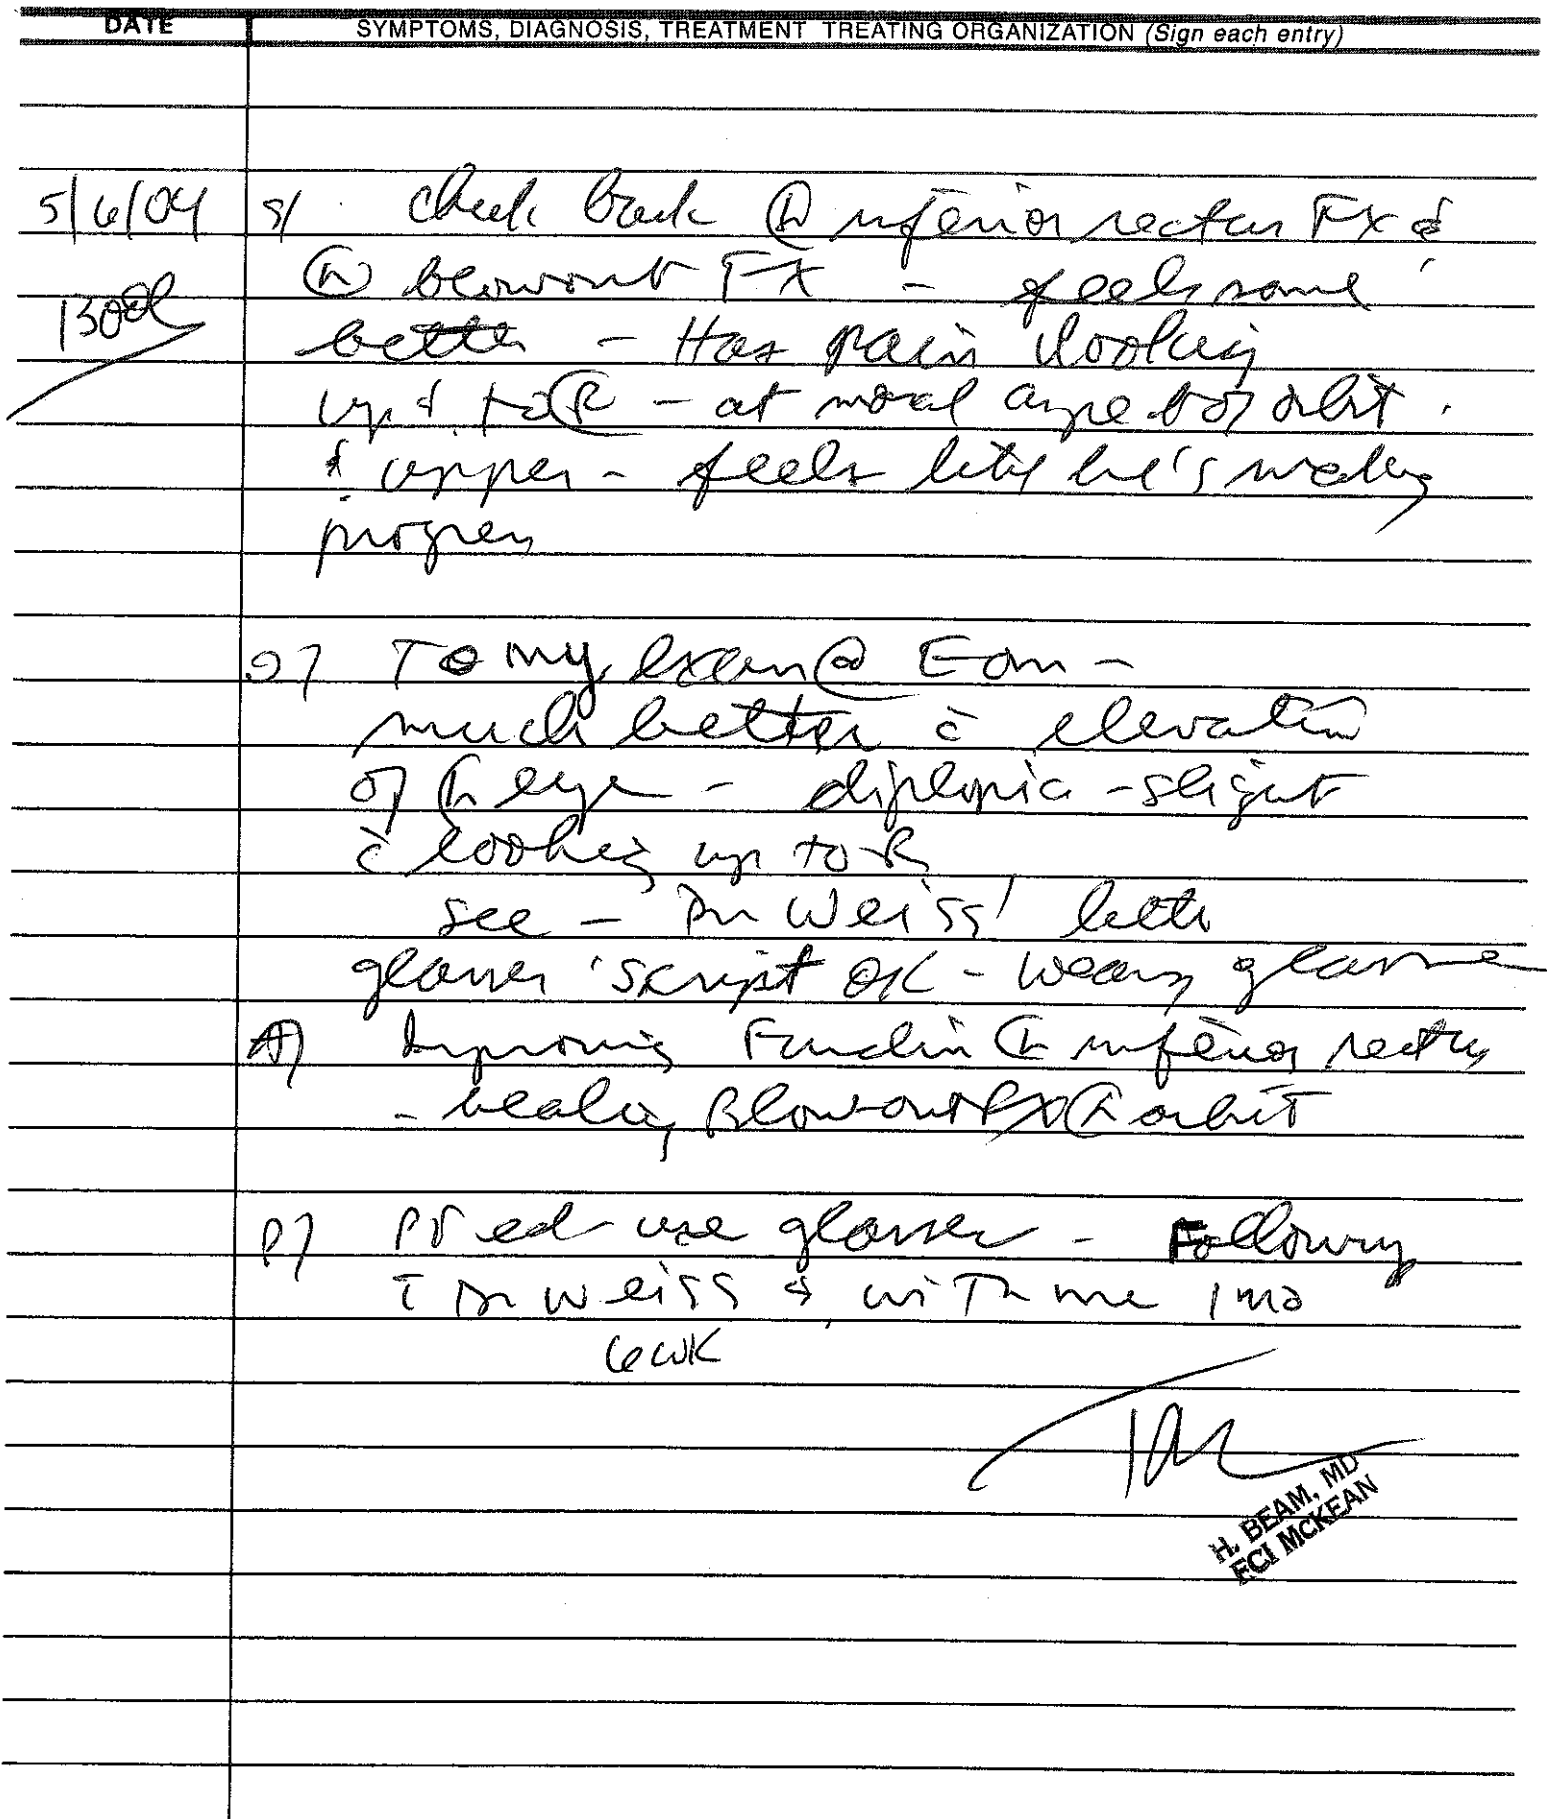 DATE SYMPTOMS, DIAGNOSIS, TREATMENT TREATING ORGANIZATION (Sign each entry)
5/6/04 S/ check back Ⓡ inferior rectus Fx &
Ⓡ blowout Fx - feels some
1300
better - Has pain looking
up & to Ⓡ - at nasal aspect of orbit
& upper - feels like he's making
progress
O) To my exam EOM -
much better c̄ elevation
of Ⓡ eye - diplopia - slight
c̄ looking up to R
see - Dr Weiss' letter
glasses 'script OK - wearing glasses
A) Improving Function Ⓡ inferior rectus
- healing Blow-out Fx Ⓡ orbit
P) Pt ed - use glasses - Following
c̄ Dr Weiss & with me 1 mo
6 wk
H. BEAM, MD
FCI MCKEAN